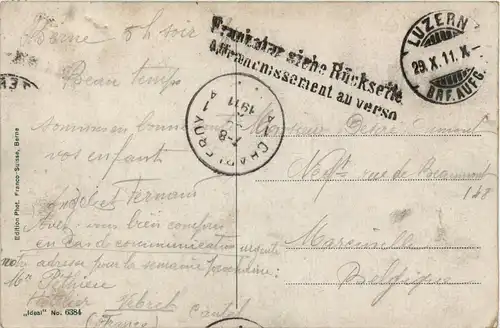 Berne 5 h soir
Beau temps
Sommes en bonne
vos enfants
Fernand
Avez-vous bien compris
en cas de communication urgente
notre adresse pour la semaine prochaine:
Mr Péthieu
Hôtelier Vebret Cantal
(France)
Frankatur siehe Rückseite
Affranchissement au verso
LUZERN
29.X.11.X-
BRF. AUFG.
CHARLEROY
1911
7-8
Monsieur Désiré
rue de Beaumont
148
Marcinelle
Belgique
Edition Phot. Franco-Suisse, Berne
„Ideal" No. 6384